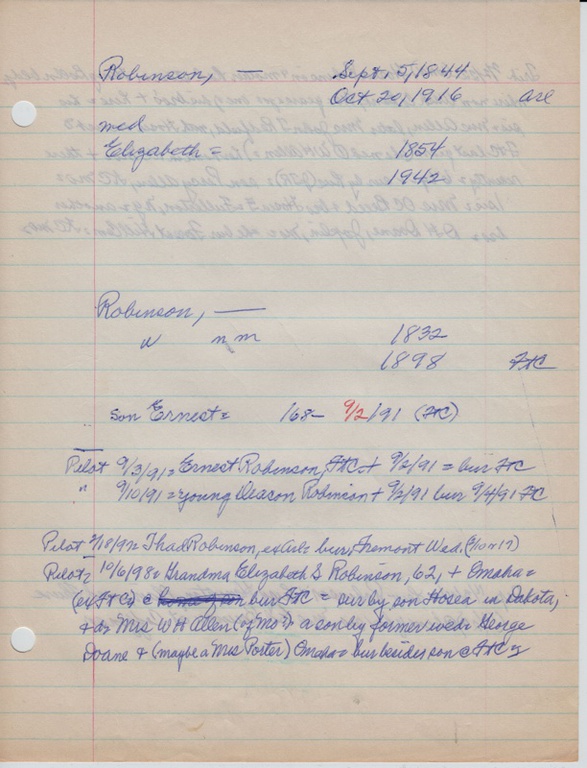 Robinson, — Sept. 5, 1844
Oct 20, 1916 are
med
Elizabeth = 1854
1942
Robinson, —
w nm 1832
1898 FtC
son Ernest = 168- 9/2/91 (FtC)
Pilot 9/3/91 = Ernest Robinson, FtC + 9/2/91 = bur FtC
" 9/10/91 = young Deason Robinson + 9/2/91 bur 9/4/91 FC
Pilot 2/18/92 = Thad Robinson, bur, Fremont Wed.
Pilot = 10/6/98 = Grandma Elizabeth S Robinson, 62, + Omaha =
(ex FtC) @ bur FtC = sur by son Hosea in Dakota;
+ da Mrs W H Allen (of Mo?) a son by former wed = George
Doane + (maybe a Mrs Porter) Omaha = bur beside son @ FtC